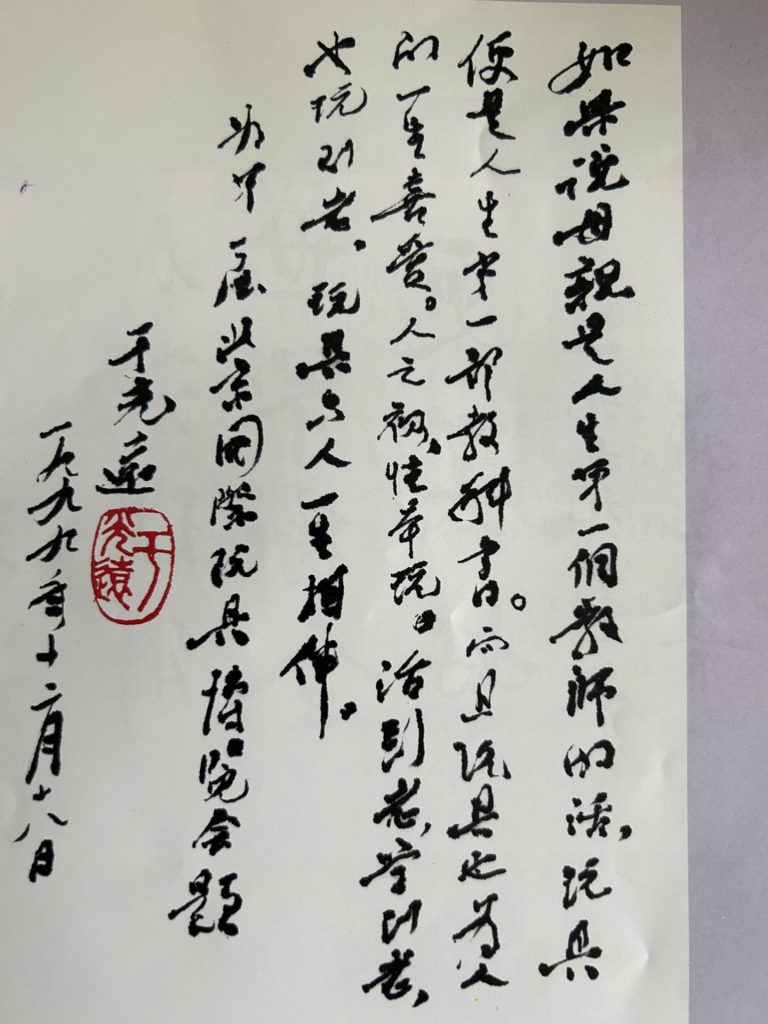 如果说母亲是人生第一个教师的话，玩具
便是人生第一部教科书。而且玩具也为人
的一生喜爱。人之初，性本玩。活到老，学到老，
也玩到老，玩具与人一生相伴。
为第一届北京国际玩具博览会题
于光远
于光远
一九九九年十二月十八日